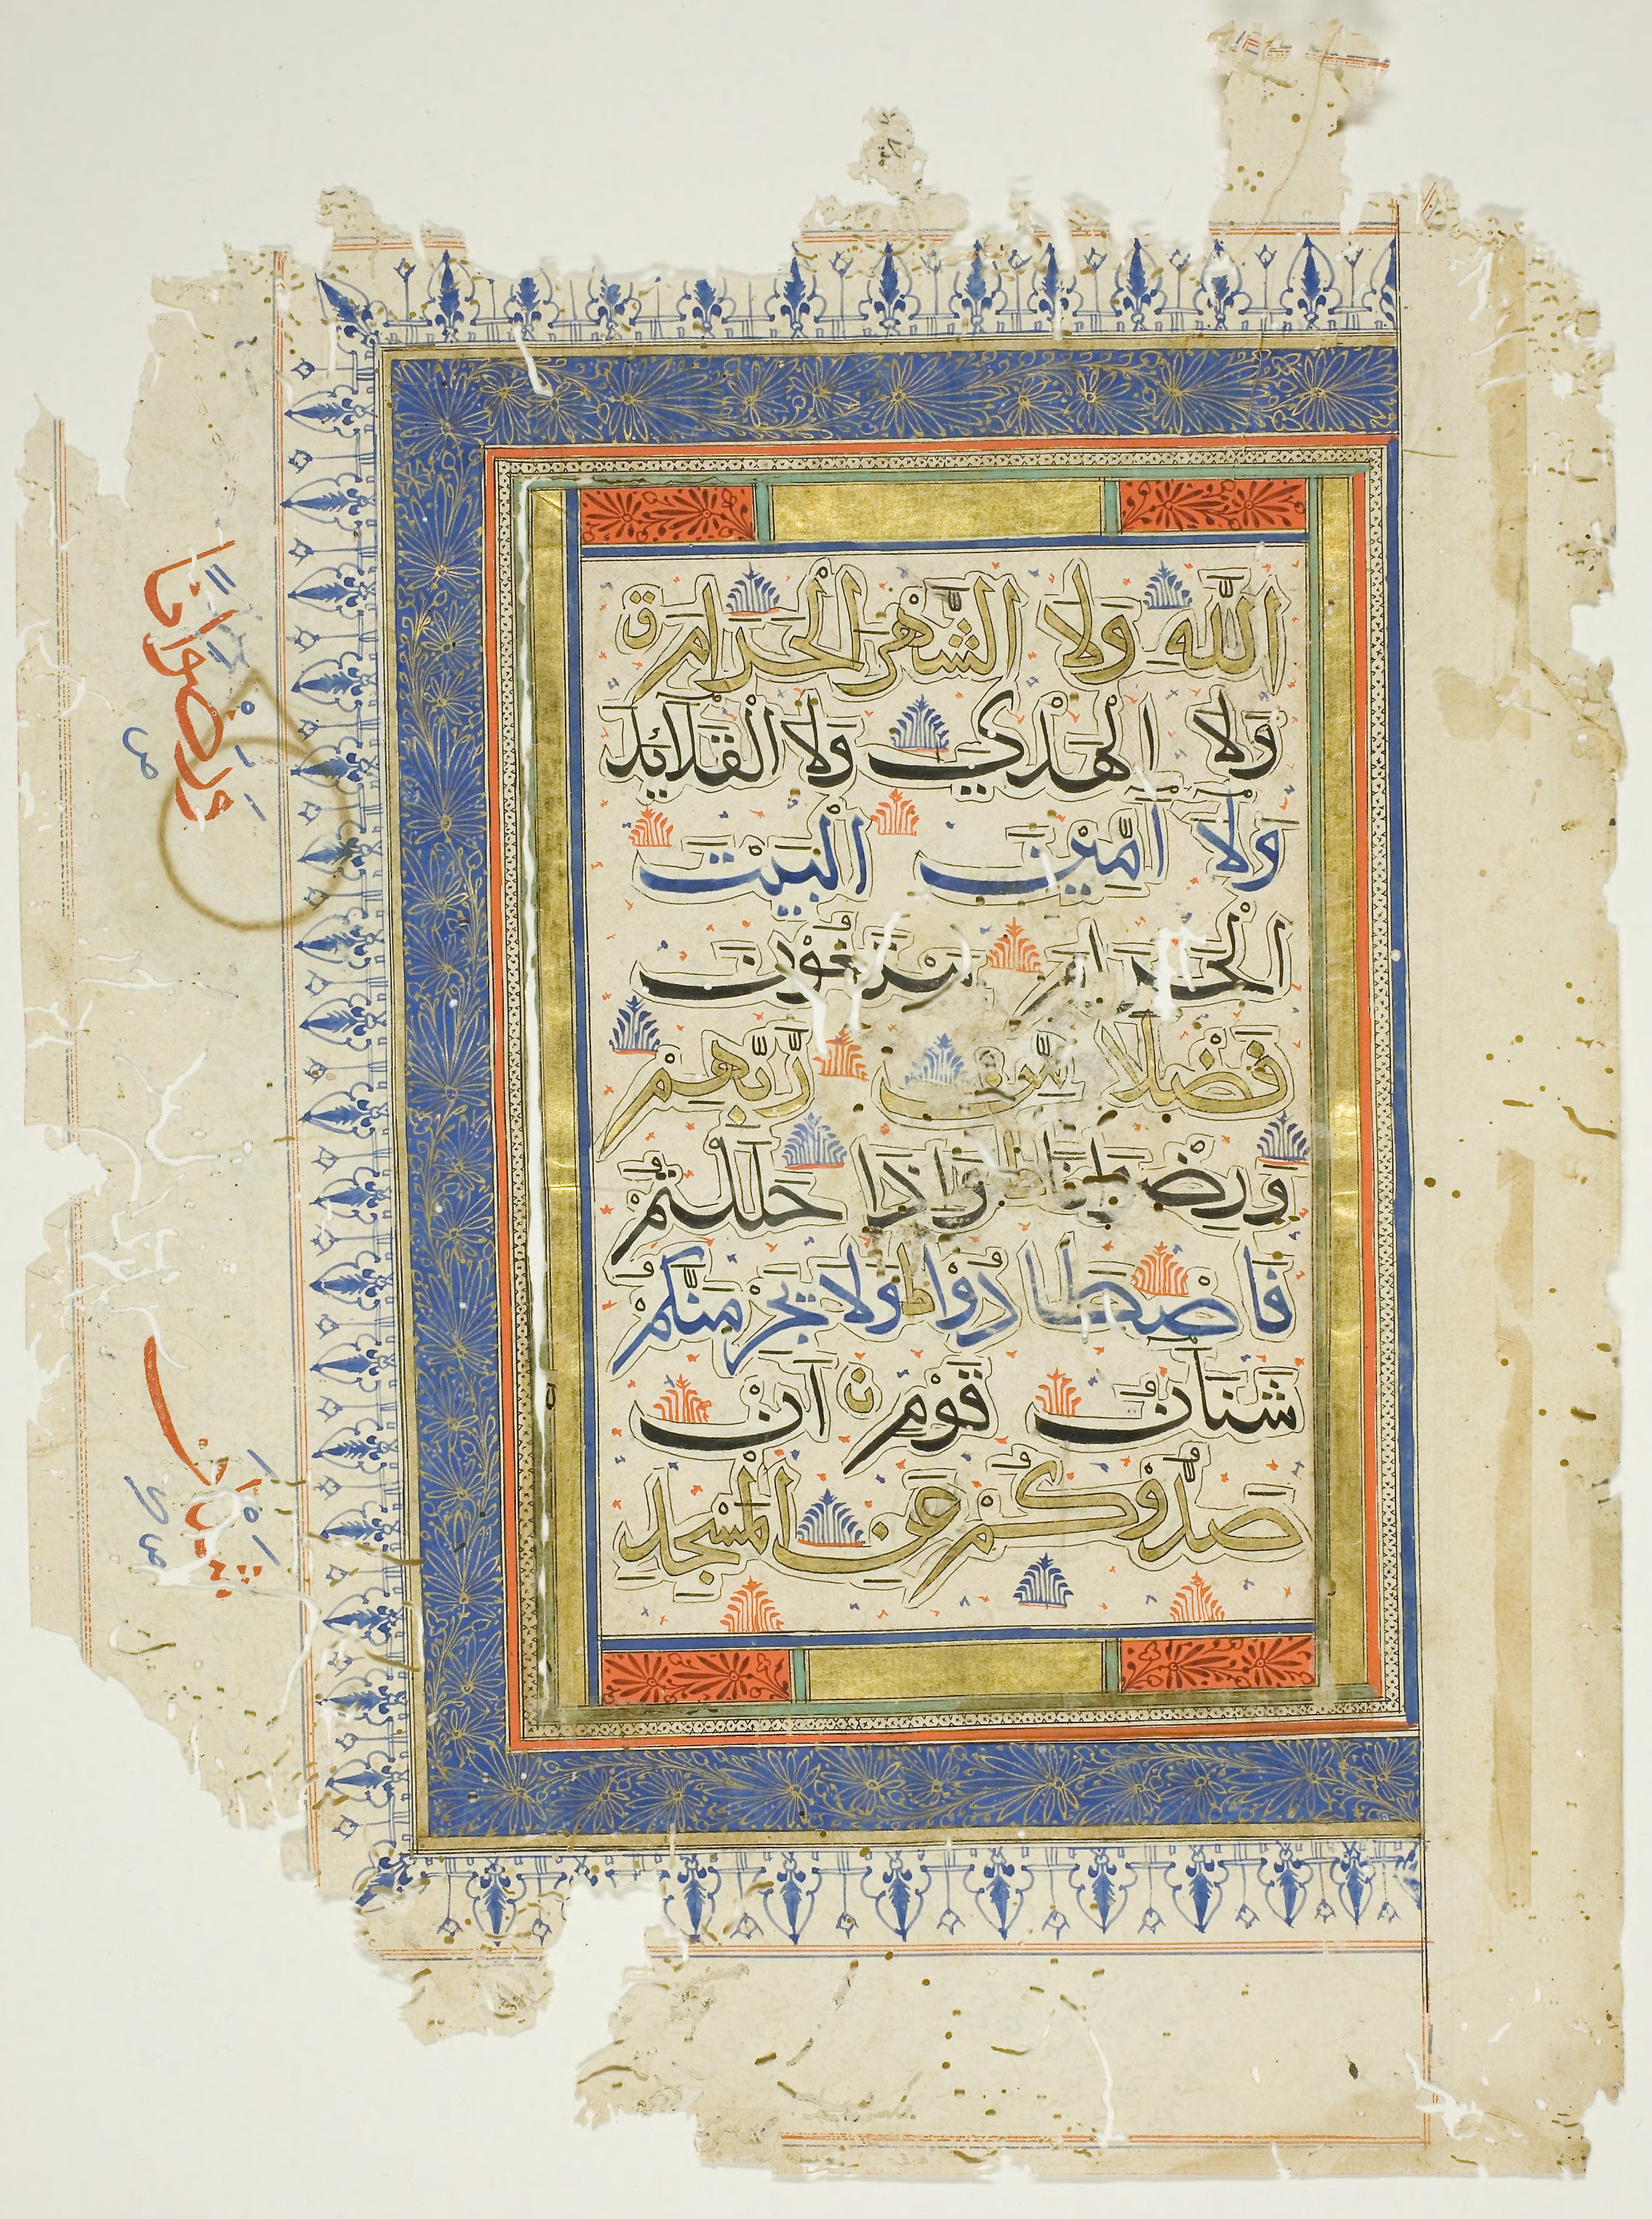 اللّٰهِ وَلَا الشَّهْرَ الْحَرَامَ
وَلَا الْهَدْيَ وَلَا الْقَلَآئِدَ
وَلَآ آمِّيْنَ الْبَيْتَ
الْحَرَامَ يَبْتَغُوْنَ
فَضْلًا مِّنْ رَّبِّهِمْ
وَرِضْوَانًا ط وَاِذَا حَلَلْتُمْ
فَاصْطَادُوْا ط وَلَا يَجْرِمَنَّكُمْ
شَنَاٰنُ قَوْمٍ اَنْ
صَدُّوْكُمْ عَنِ الْمَسْجِدِ
وَرِضْوَانًا